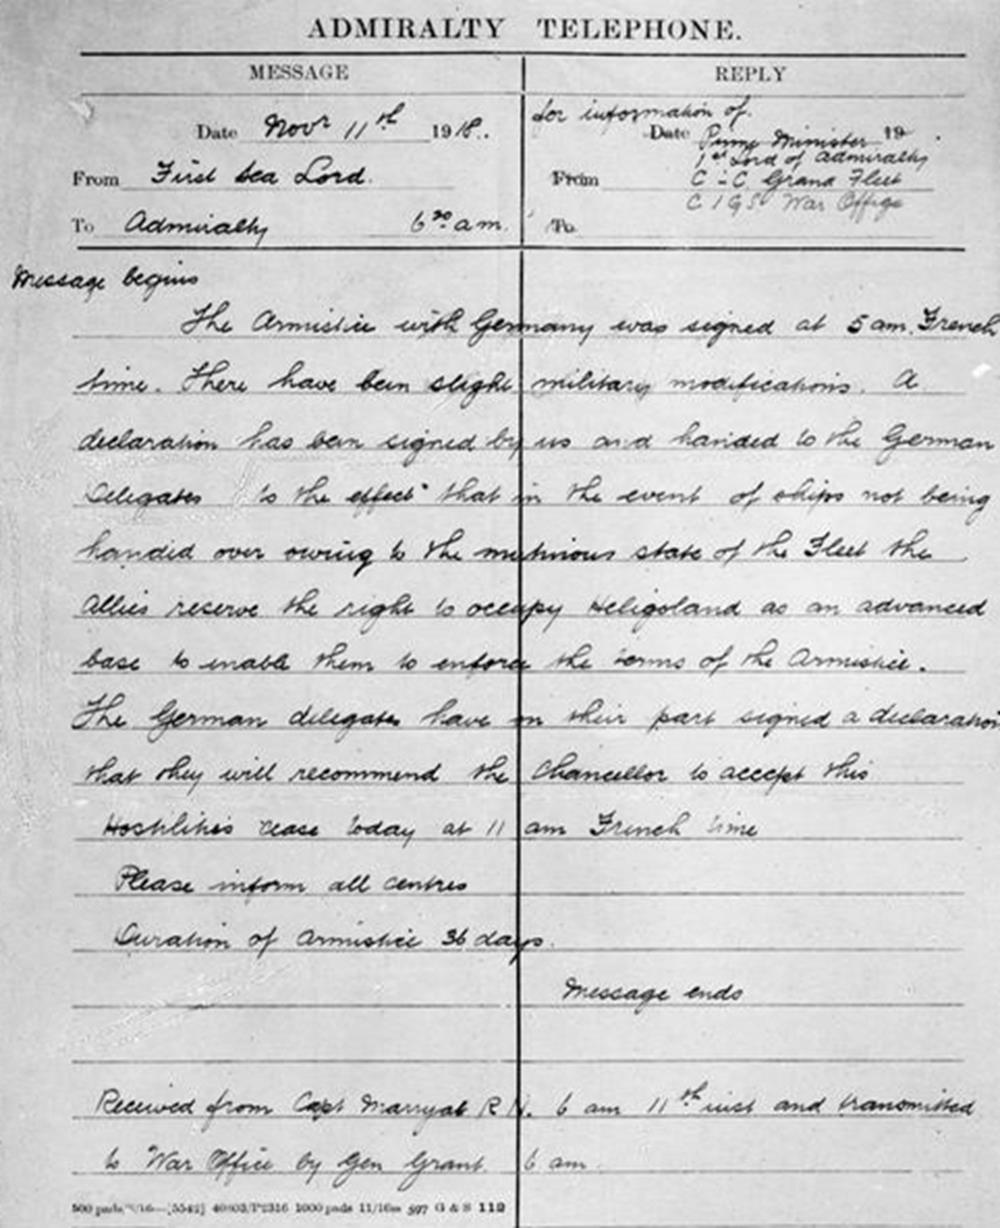 ADMIRALTY TELEPHONE.
MESSAGE
REPLY
Date Novr 11th 1918.
From First Sea Lord.
To Admiralty 6 20 a.m.
for information of.
Date Prime Minister 19
1st Lord of Admiralty
From C-C Grand Fleet
C I G S War Office
To
Message begins
The Armistice with Germany was signed at 5 am. French
time. There have been slight military modifications. A
declaration has been signed by us and handed to the German
Delegates to the effect that in the event of ships not being
handed over owing to the mutinous state of the Fleet the
Allies reserve the right to occupy Heligoland as an advanced
base to enable them to enforce the terms of the Armistice.
The German delegates have on their part signed a declaration
that they will recommend the Chancellor to accept this
Hostilities cease today at 11 am French time
Please inform all centres
Duration of Armistice 36 days.
Message ends
Received from Capt Marryat R N. 6 am 11th inst and transmitted
to War Office by Gen Grant 6 am.
500 pads /16—[5542] 40803/P2316 1000 pads 11/16 597 G & S 112